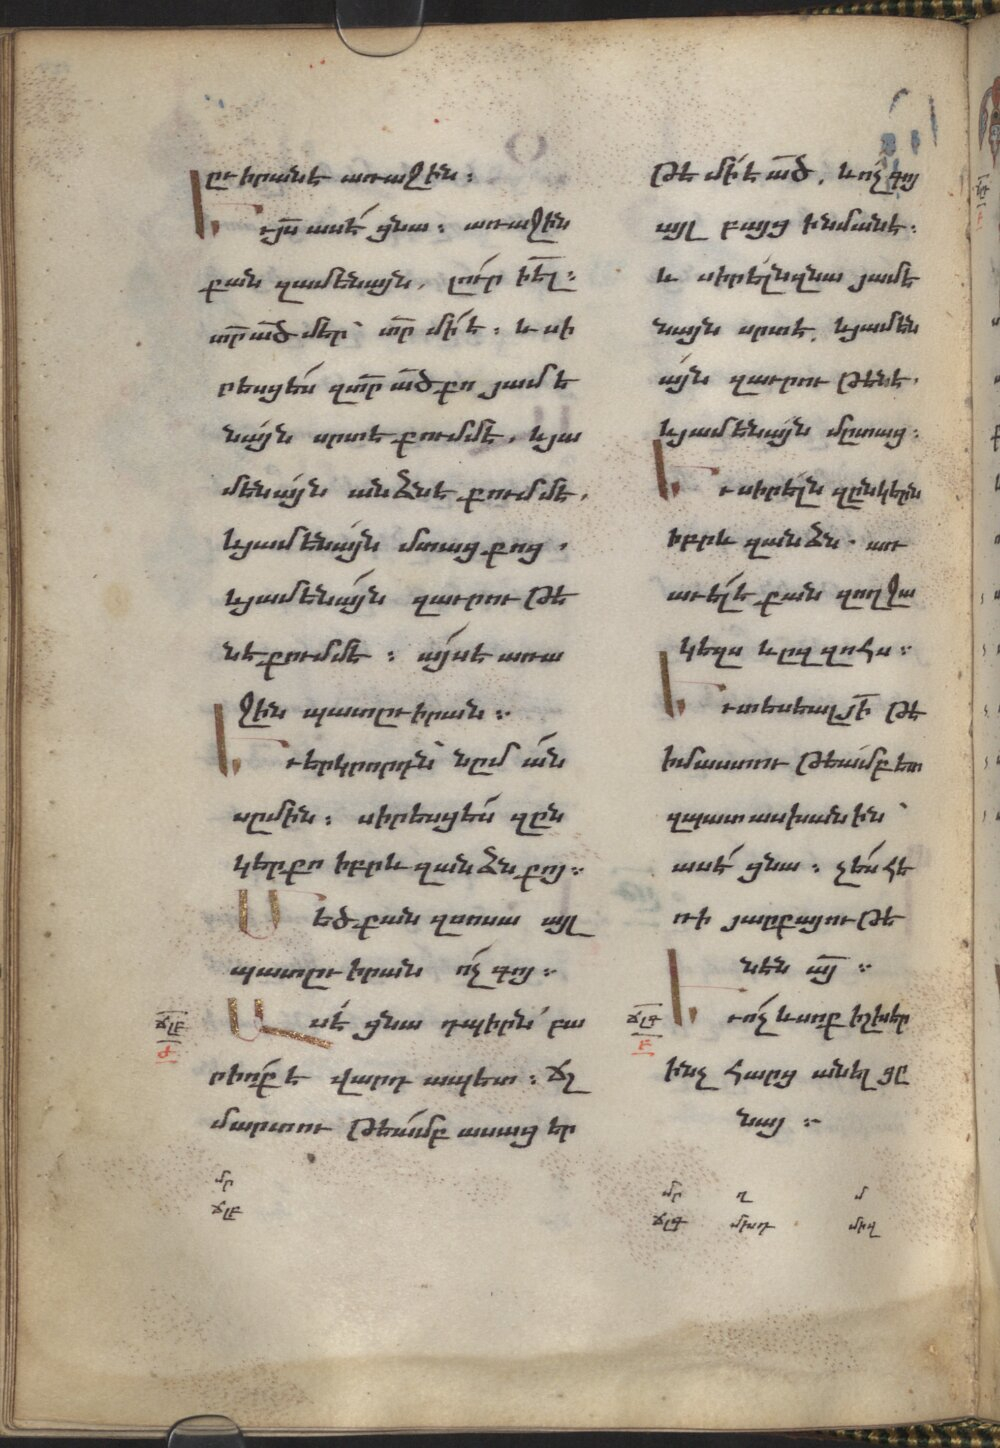 ըւիրանէ առաջին։
Եւ յս ասէ ցնա։ առաջին
քան զամենայն. լուր իէլ։
տր ած մեր՝ տր մի է։ և սի
րեսցես զտր ած քո յամե
նայն սրտէ քումմէ. և յա
մենայն անձնէ քումմէ.
և յամենայն մտաց քոց.
և յամենայն զաւրութե
նէ քումմէ։ այս է առա
ջին պատըւիրան։
Եւ երկրորդն՝ նըմ ան
սըմին։ սիրեսցես զըն
կեր քո իբրև զանձն քոյ։
Մեծ քան զսոսա այլ
պատըւիրան ոչ գոյ։
Ասէ ցնա դպիրն՝ բա
րիոք է վարդապետ։ ճշ
մարտութեամբ ասացեր
թէ մի է ած. և ոչ գոյ
այլ բայց ինմանէ։
և սիրելնզնա յամե
նայն սրտէ. և յամեն
այն զաւրութենէ.
և յամենայն մըտաց։
Եւ սիրելն զընկերն
իբրև զանձն. առ
աւել է քան զողջա
կէզս և ըզ զոհս։
Եւ տեսեալ յի թէ
իմաստութեամբ ետ
զպատասխանին՝
ասէ ցնա։ չես հե
ռի յարքայութե
նէն այ։
Եւ ոչ ևս ոք իշխեր
ինչ հարց անել ցը
նայ։
ճլբ
ժ
ճլգ
բ
մր
ճլբ
մր
ճլգ
ղ
մ